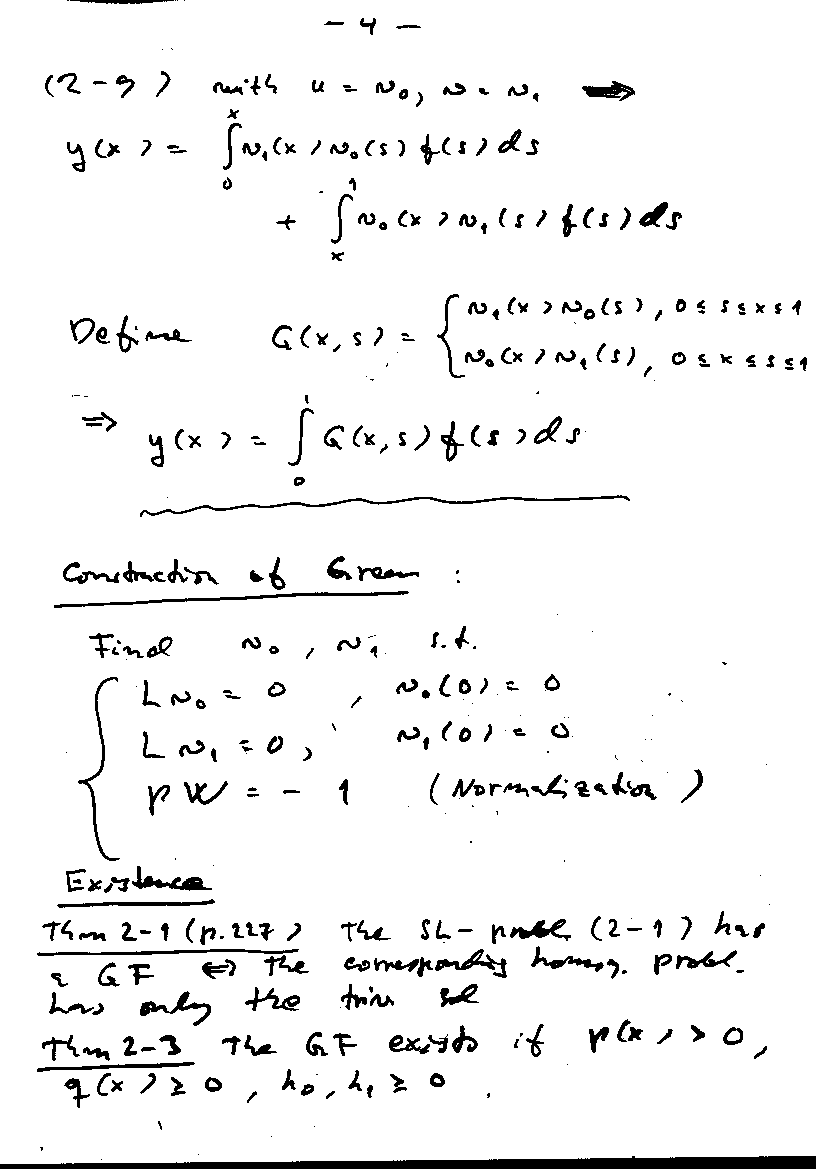 - 4 -
(2-9) with u = v₀, v = v₁ ⟹
y(x) = ∫₀ˣ v₁(x) v₀(s) f(s) ds
+ ∫ₓ¹ v₀(x) v₁(s) f(s) ds
Define G(x, s) = { v₁(x) v₀(s), 0 ≤ s ≤ x ≤ 1
v₀(x) v₁(s), 0 ≤ x ≤ s ≤ 1
⇒ y(x) = ∫₀¹ G(x, s) f(s) ds
Construction of Green :
Find v₀, v₁ s.t.
{ L v₀ = 0 , v₀(0) = 0
L v₁ = 0 , v₁(0) = 0
p W = - 1 (Normalization)
Existence
Thm 2-1 (p. 227) The SL-probl. (2-1) has
a GF ⇔ the corresponding homog. probl.
has only the triv. sol
Thm 2-3 The GF exists if p(x) > 0,
q(x) ≥ 0, h₀, h₁ ≥ 0.